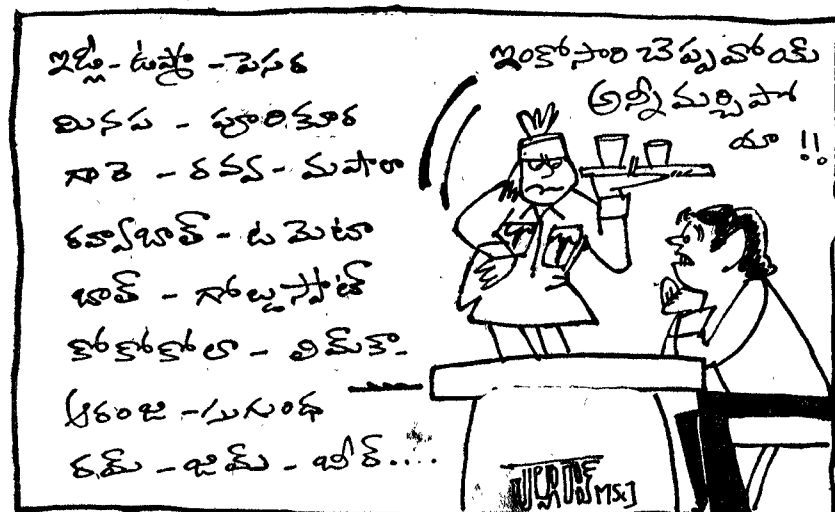 ఇడ్లీ - ఉప్మా - పెసర
మినప - పూరికూర
గారె - రవ్వ - మషాలా
రవ్వాబాత్ - టమెటా
బాత్ - గోల్డుస్పాట్
కోకోకోలా - లిమ్కా -
ఆరంజి - సుగంధ
రమ్ - జిమ్ - బీర్....
ఇంకోసారి చెప్పవోయ్
అన్నీ మర్చిపో
యా !!